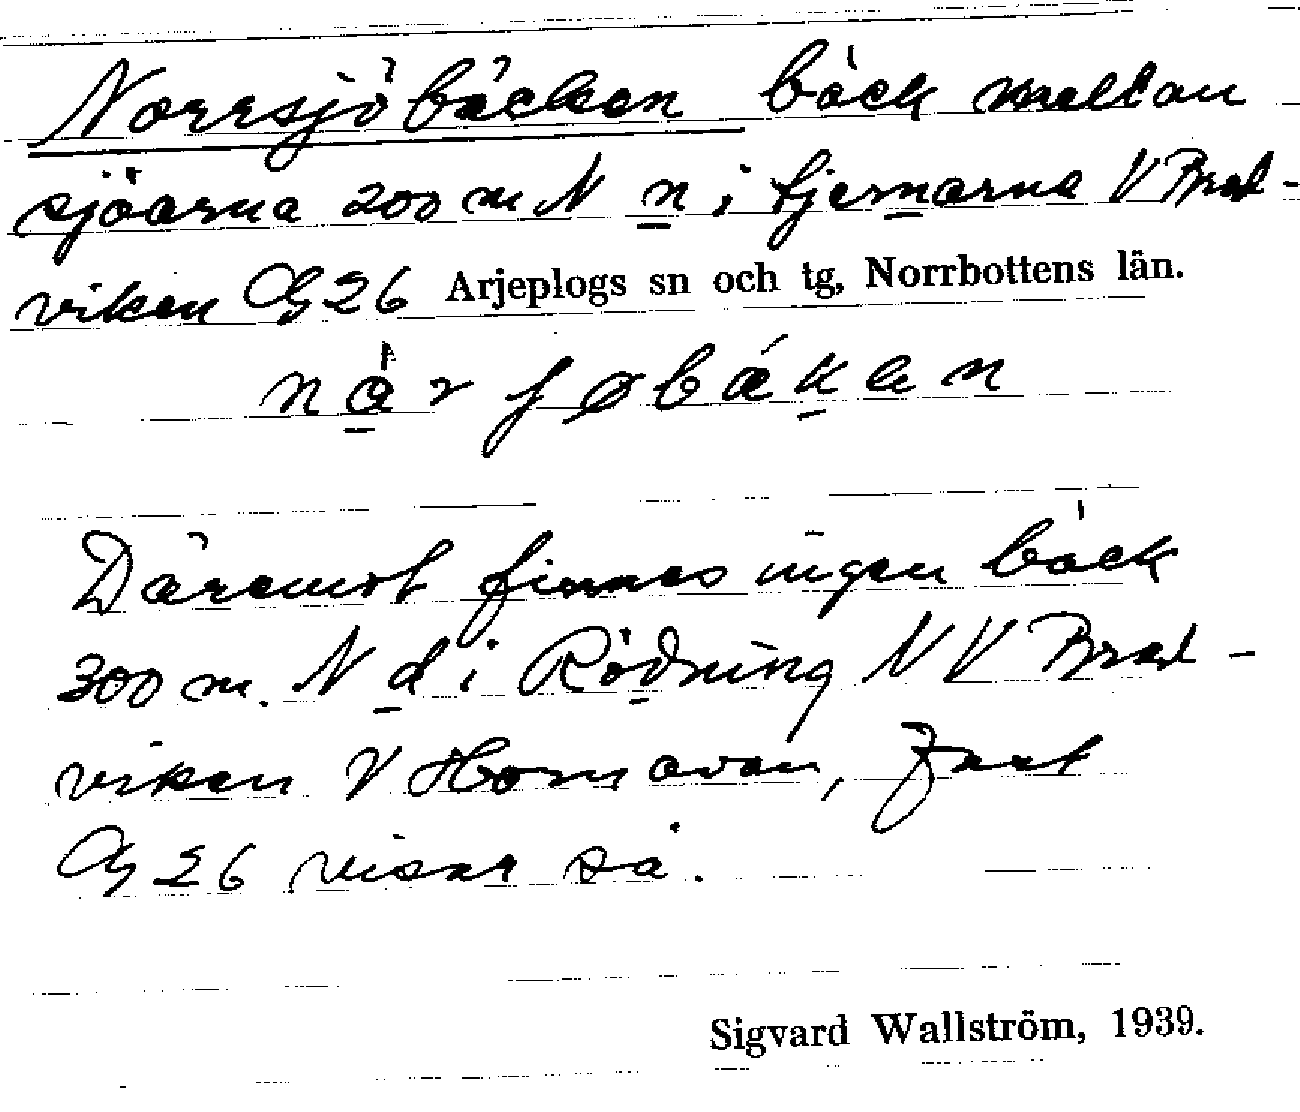 Norrsjöbäcken bäck mellan
sjöarna 200 m N n i tjernarna V Brad-
viken Gg 26 Arjeplogs sn och tg, Norrbottens län.
Däremot finnes ingen bäck
300 m. N d i Rödning NV Brad-
viken V Hornavan, fast
Gg 26 visar så.
Sigvard Wallström, 1939.